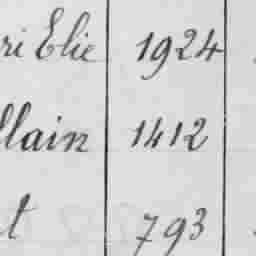 ri Elie 1924
llain 1412
t 793